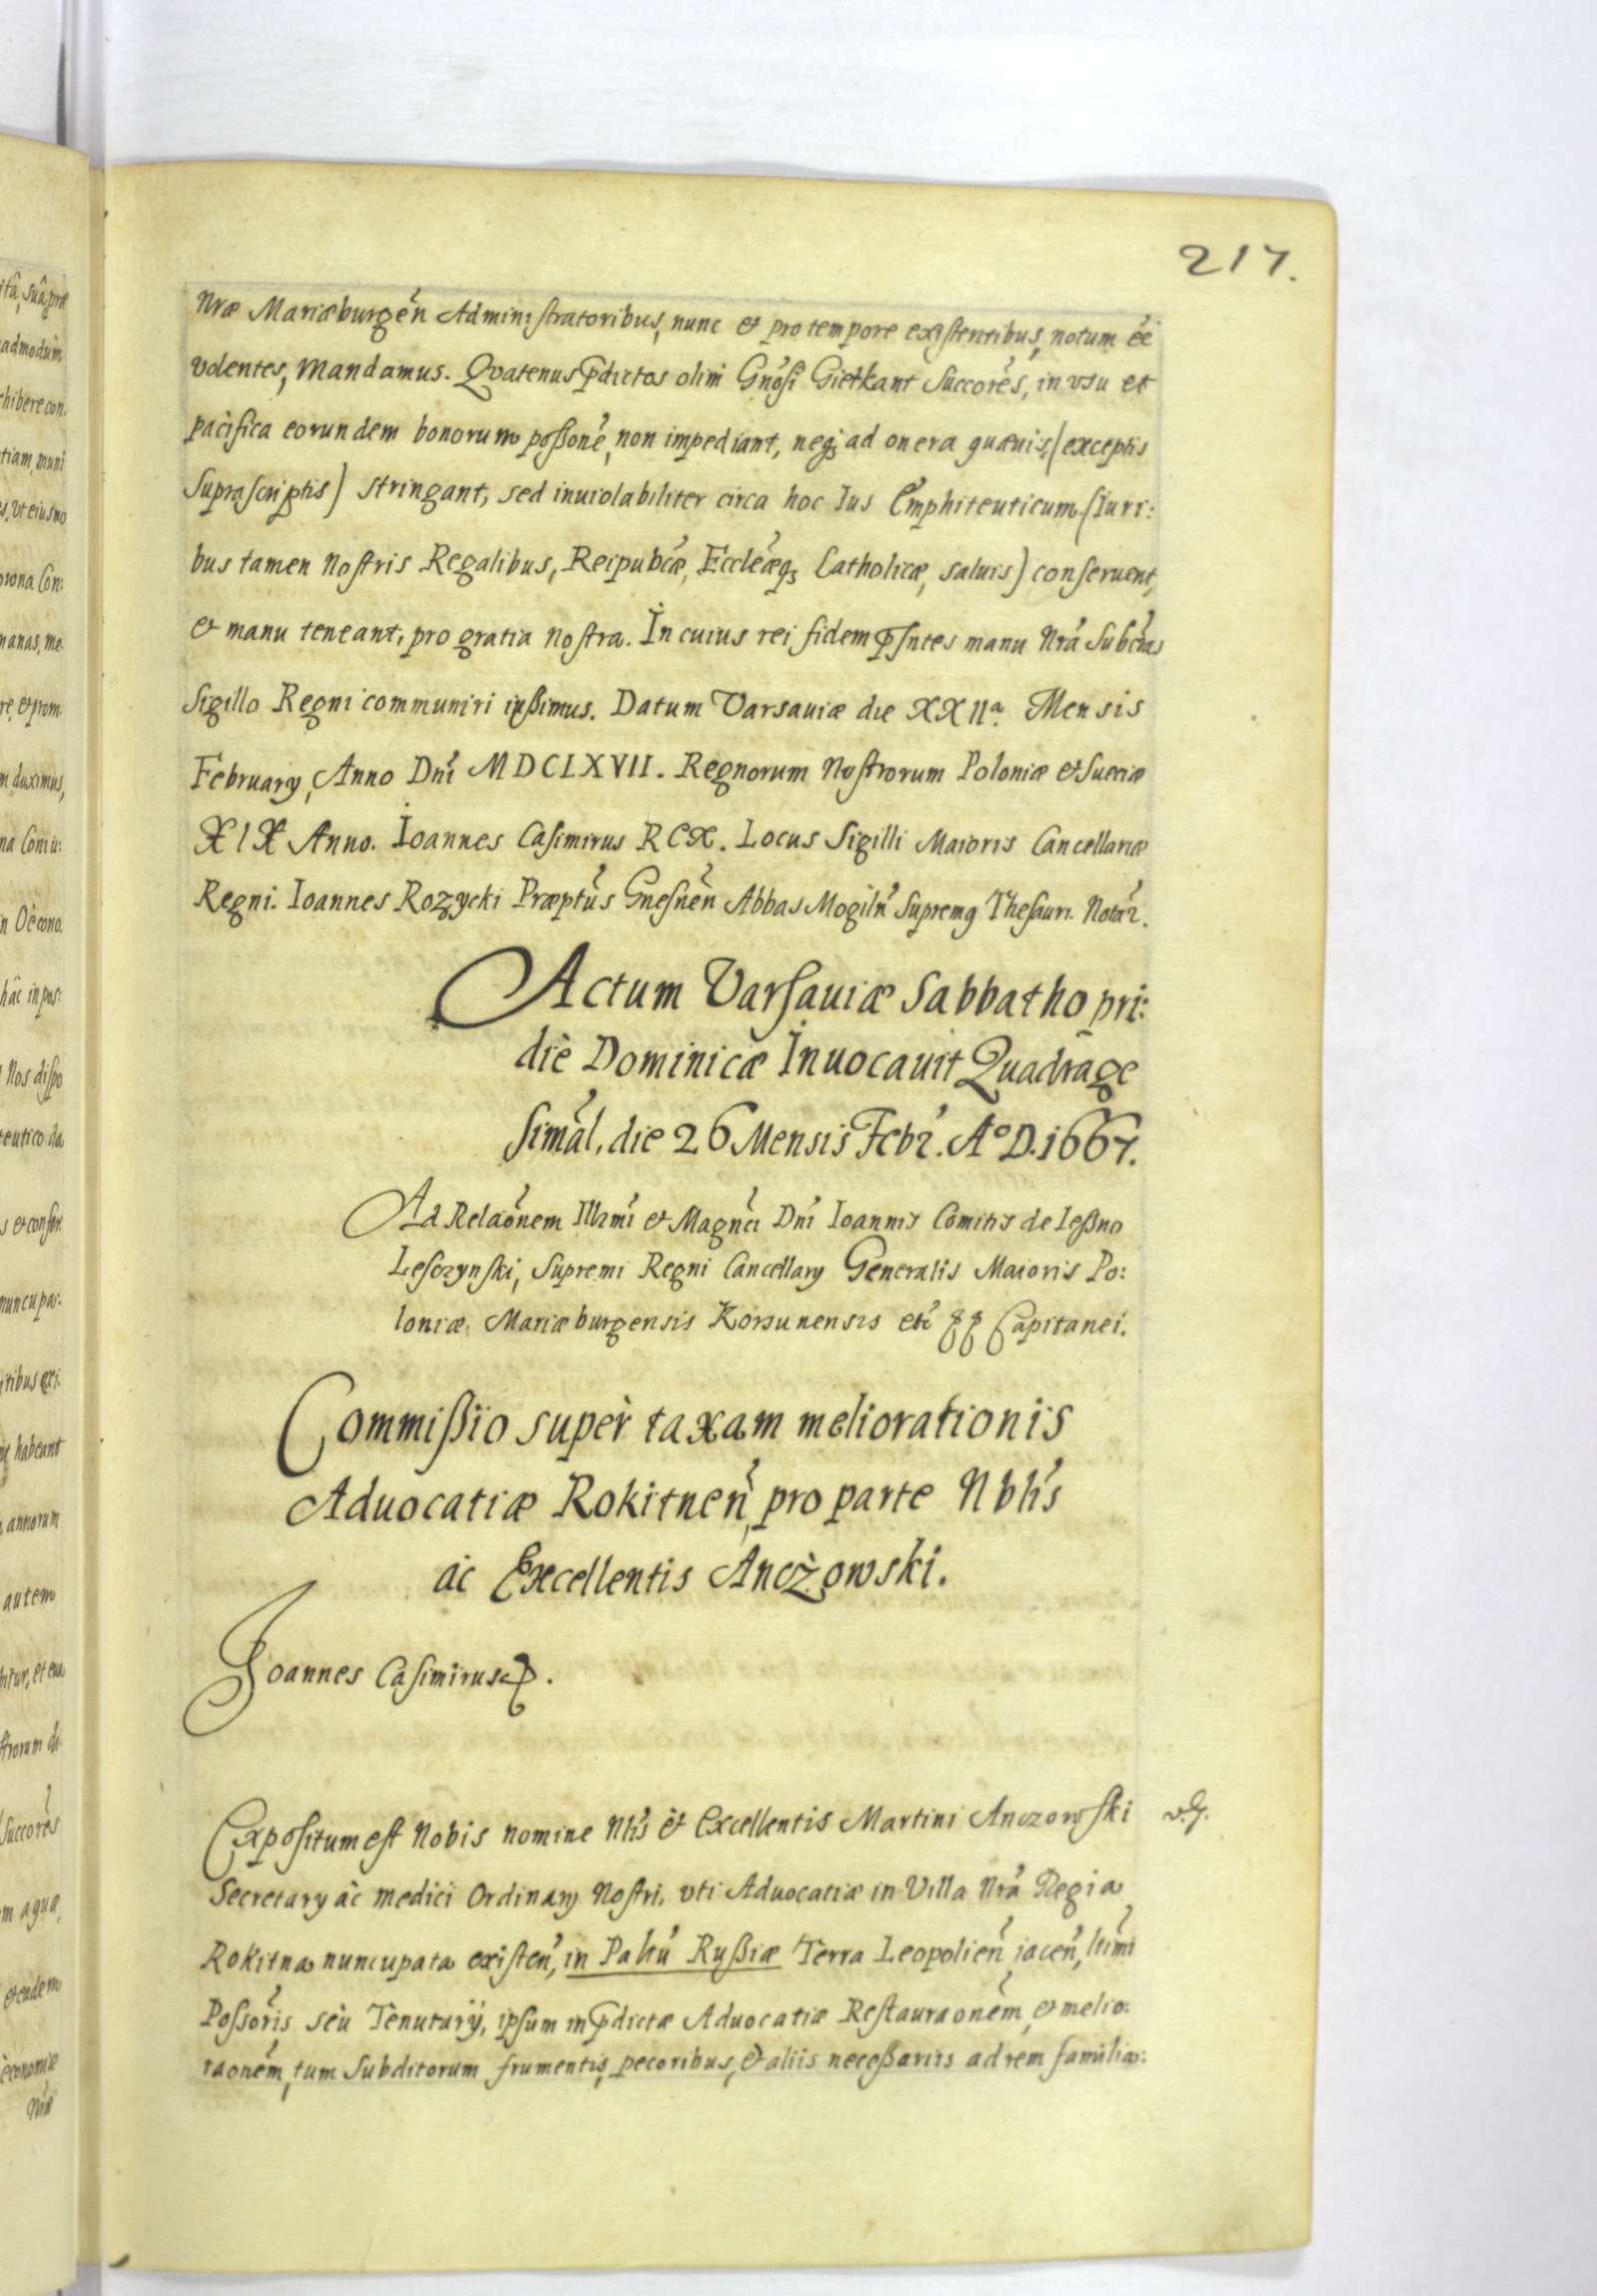 217.
Nræ Mariæburgeñ Administratoribus, nunc et pro tempore existentibus, notum ẽe
volentes, Mandamus. Qvatenus p̃dictos olim Gnõsi Gietkant Succorẽs, in vsu et
pacifica eorundem bonorum poßonẽ, non impediant, neq; ad onera quæuis, (exceptis
suprascriptis) stringant, sed inuiolabiliter circa hoc Ius Emphiteuticum (Iuri:
bus tamen Nostris Regalibus, Reipubcæ, Eccleæq; Catholicæ, saluis) conseruent,
et manu teneant, pro gratia nostra. In cuius rei fidem p̃sntes manu Nrã Subcras
Sigillo Regni communiri iußimus. Datum Varsauiæ die XXIIa. Mensis
February, Anno Dnĩ MDCLXVII. Regnorum Nostrorum Poloniæ et Sueciæ
XIX Anno. Ioannes Casimirus REX. Locus Sigilli Maioris Cancellariæ
Regni. Ioannes Rozycki Præptũs Gnesneñ Abbas Mogilñ Supremq Thesaur. Notar̃.
Actum Varsauiæ Sabbatho pri:
die Dominicæ Inuocauit Quadrage
simãl, die 26 Mensis Febr̃. Ao D. 1667.
Ad Relaõnem Illrmĩ et Magncĩ Dnĩ Ioannis Comitis de Leßno
Lesczynski, Supremi Regni Cancellary Generalis Maioris Po:
loniæ, Mariæburgensis Korsunensis etc̃ Capitanei.
Commißio super taxam meliorationis
Aduocatiæ Rokitneñ, pro parte Nblĩs
ac Excellentis Anczowski.
Joannes Casimirus.
Expositum est Nobis nomine Nlĩs et Excellentis Martini Anczowski
Secretary ac medici Ordinary Nostri, vti Aduocatiæ in Villa Nrã Regia
Rokitna nuncupata existeñ, in Palñu Rußiæ Terra Leopolieñ iaceñ, ltimĩ
Poßorĩs seu Tenutarÿ, ipsum in p̃dictæ Aduocatiæ Restauraonẽm, et melio:
raonẽm, tum Subditorum frumentis, pecoribus, et aliis neceßariis ad rem familia: